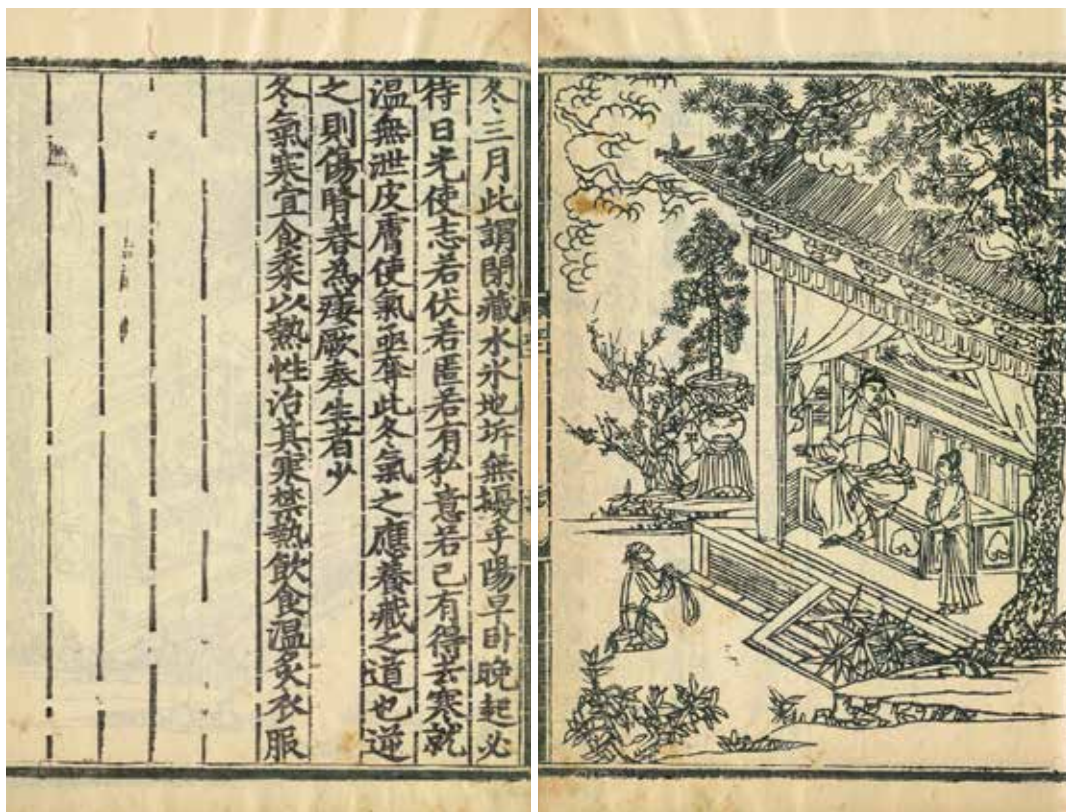 冬宜食黍
冬三月此謂閉藏水氷地坼無擾乎陽早卧晚起必
待日光使志若伏若匿若有私意若已有得去寒就
溫無泄皮膚使氣亟奪此冬氣之應養藏之道也逆
之則傷腎春為痿厥奉生者少
冬氣寒宜食黍以熱性治其寒禁熱飲食溫炙衣服